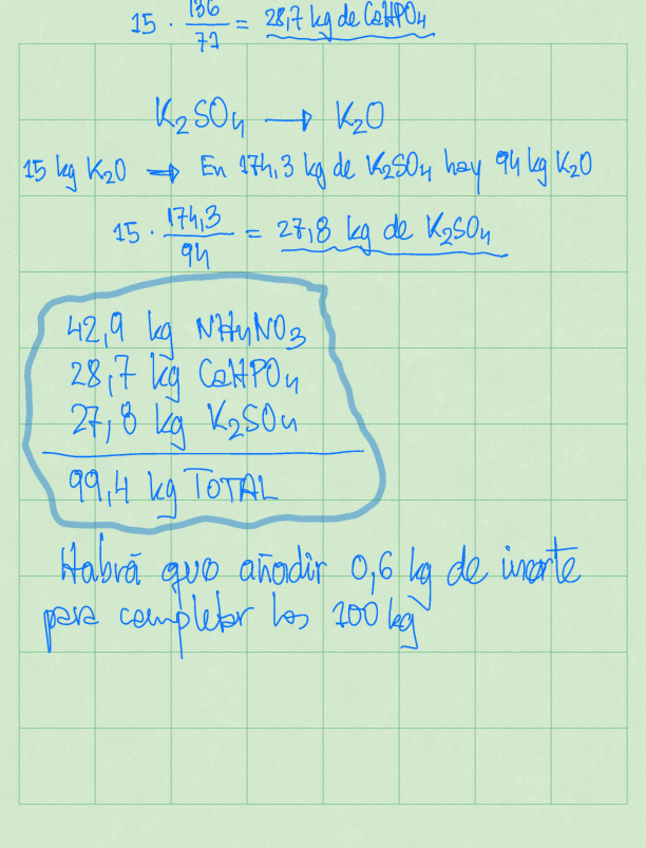 15 · 136/71 = 28,7 kg de CaHPO4
K2SO4 → K2O
15 kg K2O → En 174,3 kg de K2SO4 hay 94 kg K2O
15 · 174,3/94 = 27,8 kg de K2SO4
42,9 kg NH4NO3
28,7 kg CaHPO4
27,8 kg K2SO4
99,4 kg TOTAL
Habrá que añadir 0,6 kg de inerte
para completar los 100 kg